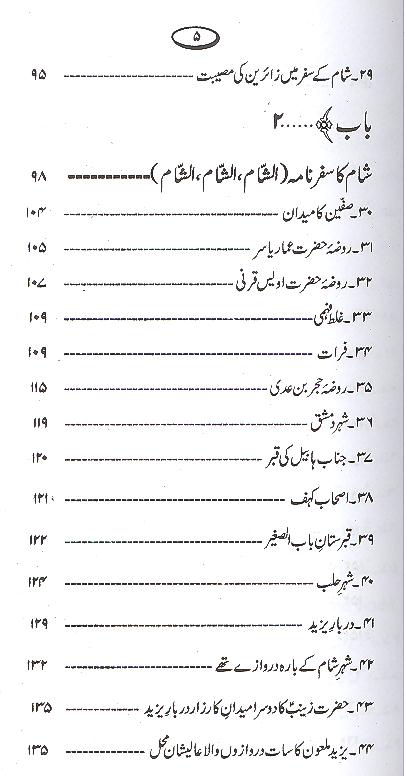 ۵
۲۹۔ شام کے سفر میں زائرین کی مصیبت ---------------- ۹۵
باب ﴾......۲
شام کا سفر نامہ (الشّام، الشّام، الشّام) ----------- ۹۸
۳۰۔ صفّین کا میدان -------------------------- ۱۰۴
۳۱۔ روضۂ حضرت عمار یاسر ---------------------- ۱۰۵
۳۲۔ روضۂ حضرت اویس قرنی -------------------- ۱۰۷
۳۳۔ غلط فہمی ------------------------------ ۱۰۹
۳۴۔ فرات -------------------------------- ۱۰۹
۳۵۔ روضۂ حجر بن عدی ------------------------ ۱۱۵
۳۶۔ شہر دمشق ----------------------------- ۱۱۹
۳۷۔ جناب ہابیل کی قبر ------------------------ ۱۲۰
۳۸۔ اصحاب کہف --------------------------- ۱۲۱
۳۹۔ قبرستانِ باب الصغیر ----------------------- ۱۲۲
۴۰۔ شہرِ حلب ------------------------------ ۱۲۴
۴۱۔ دربارِ یزید ----------------------------- ۱۲۹
۴۲۔ شہرِ شام کے بارہ دروازے تھے ---------------- ۱۳۲
۴۳۔ حضرت زینبؑ کا دوسرا میدانِ کارزار دربارِ یزید -------- ۱۳۵
۴۴۔ یزید ملعون کا سات دروازوں والا عالیشان محل -------- ۱۳۵